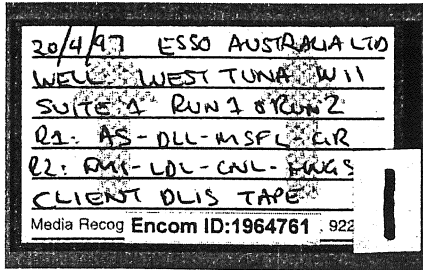 20/4/97 ESSO AUSTRALIA LTD
WELL: WEST TUNA W11
SUITE 1 RUN 1 & RUN 2
R1: AS-DLL-MSFL-GR
R2: FMI-LDL-CNL-HNGS
CLIENT DLIS TAPE
Media Recog Encom ID:1964761 . 922
1